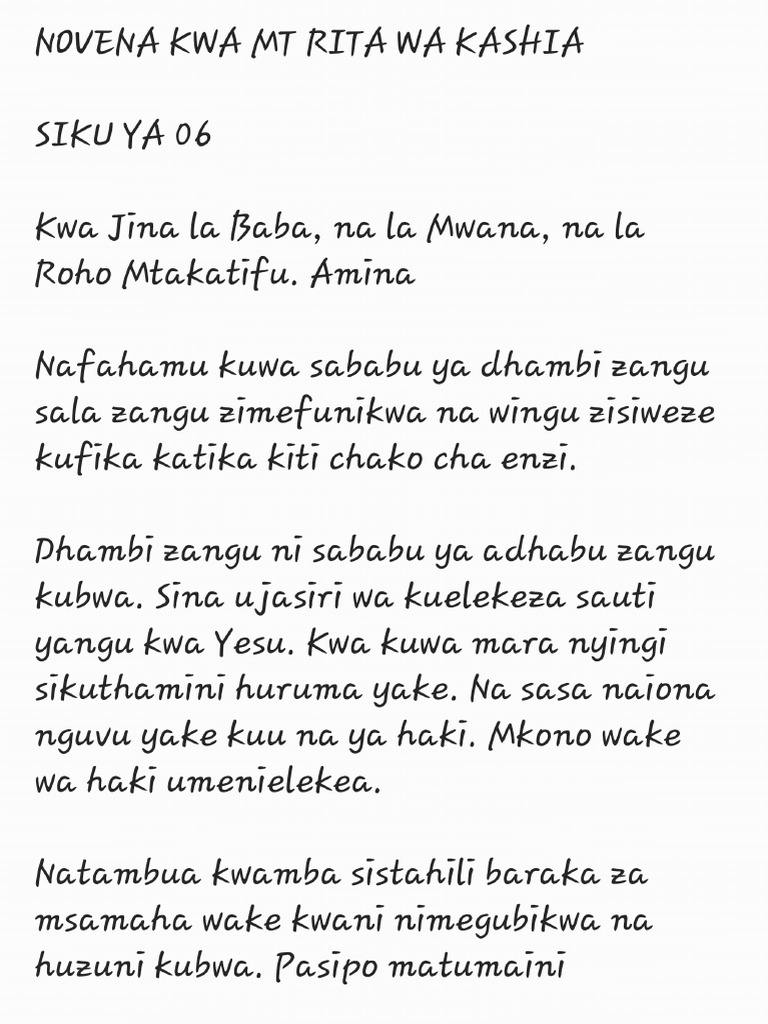 NOVENA KWA MT RITA WA KASHIA
SIKU YA 06
Kwa Jina la Baba, na la Mwana, na la
Roho Mtakatifu. Amina
Nafahamu kuwa sababu ya dhambi zangu
sala zangu zimefunikwa na wingu zisiweze
kufika katika kiti chako cha enzi.
Dhambi zangu ni sababu ya adhabu zangu
kubwa. Sina ujasiri wa kuelekeza sauti
yangu kwa Yesu. Kwa kuwa mara nyingi
sikuthamini huruma yake. Na sasa naiona
nguvu yake kuu na ya haki. Mkono wake
wa haki umenielekea.
Natambua kwamba sistahili baraka za
msamaha wake kwani nimegubikwa na
huzuni kubwa. Pasipo matumaini